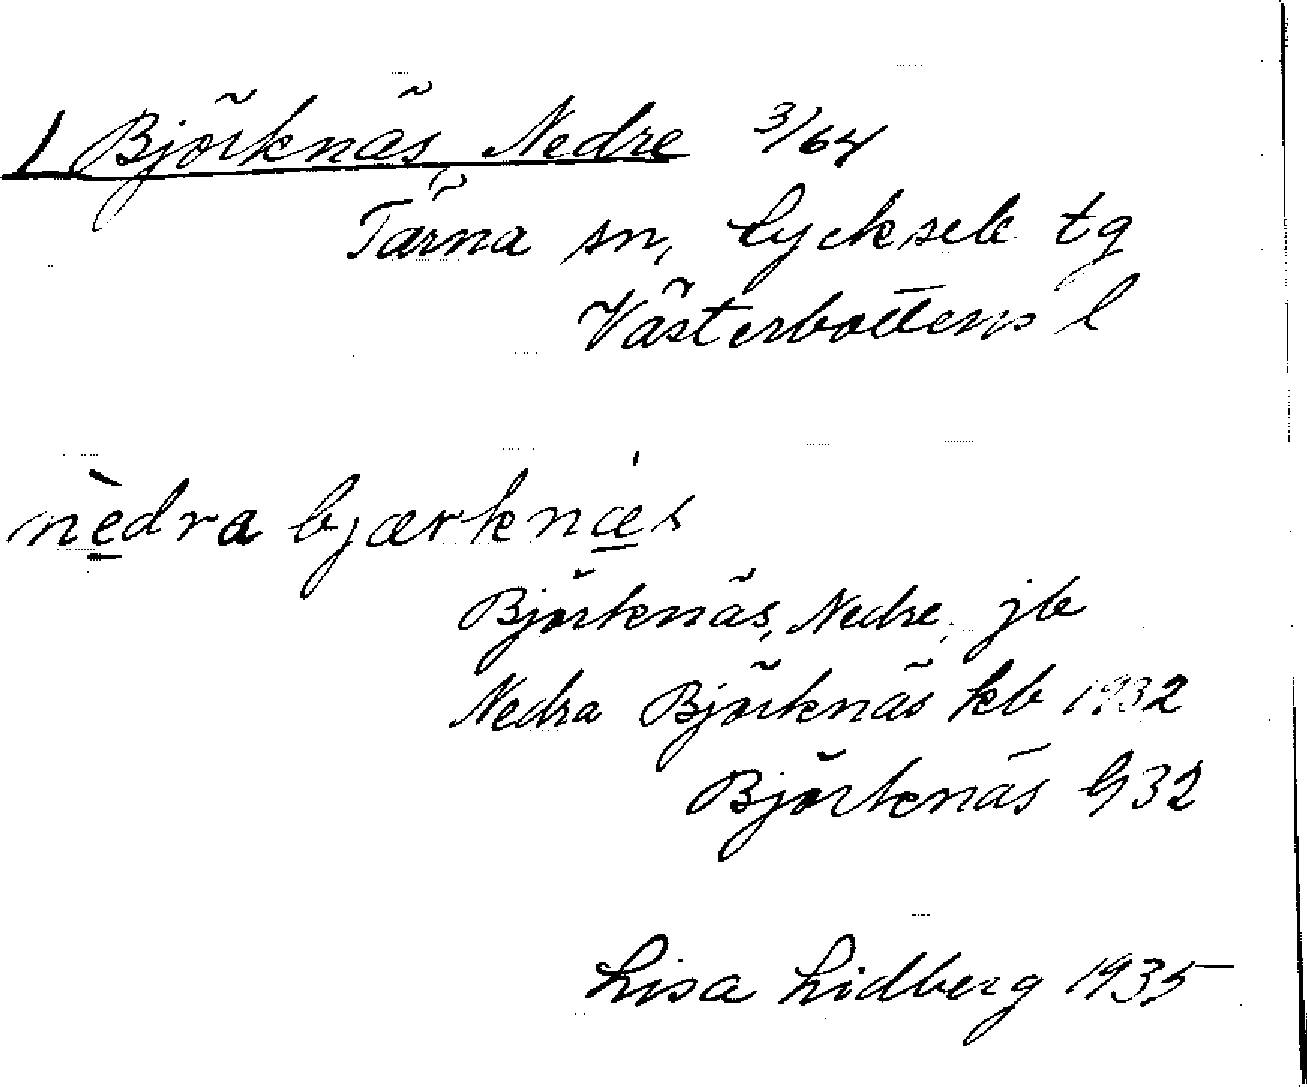 1 Björknäs, Nedre 3/64
Tärna sn, Lycksele tg
Västerbottens l
nèdra bjærknæ's
Björknäs, Nedre, jb
Nedra Björknäs kb 1932
Björknäs G32
Lisa Lidberg 1935